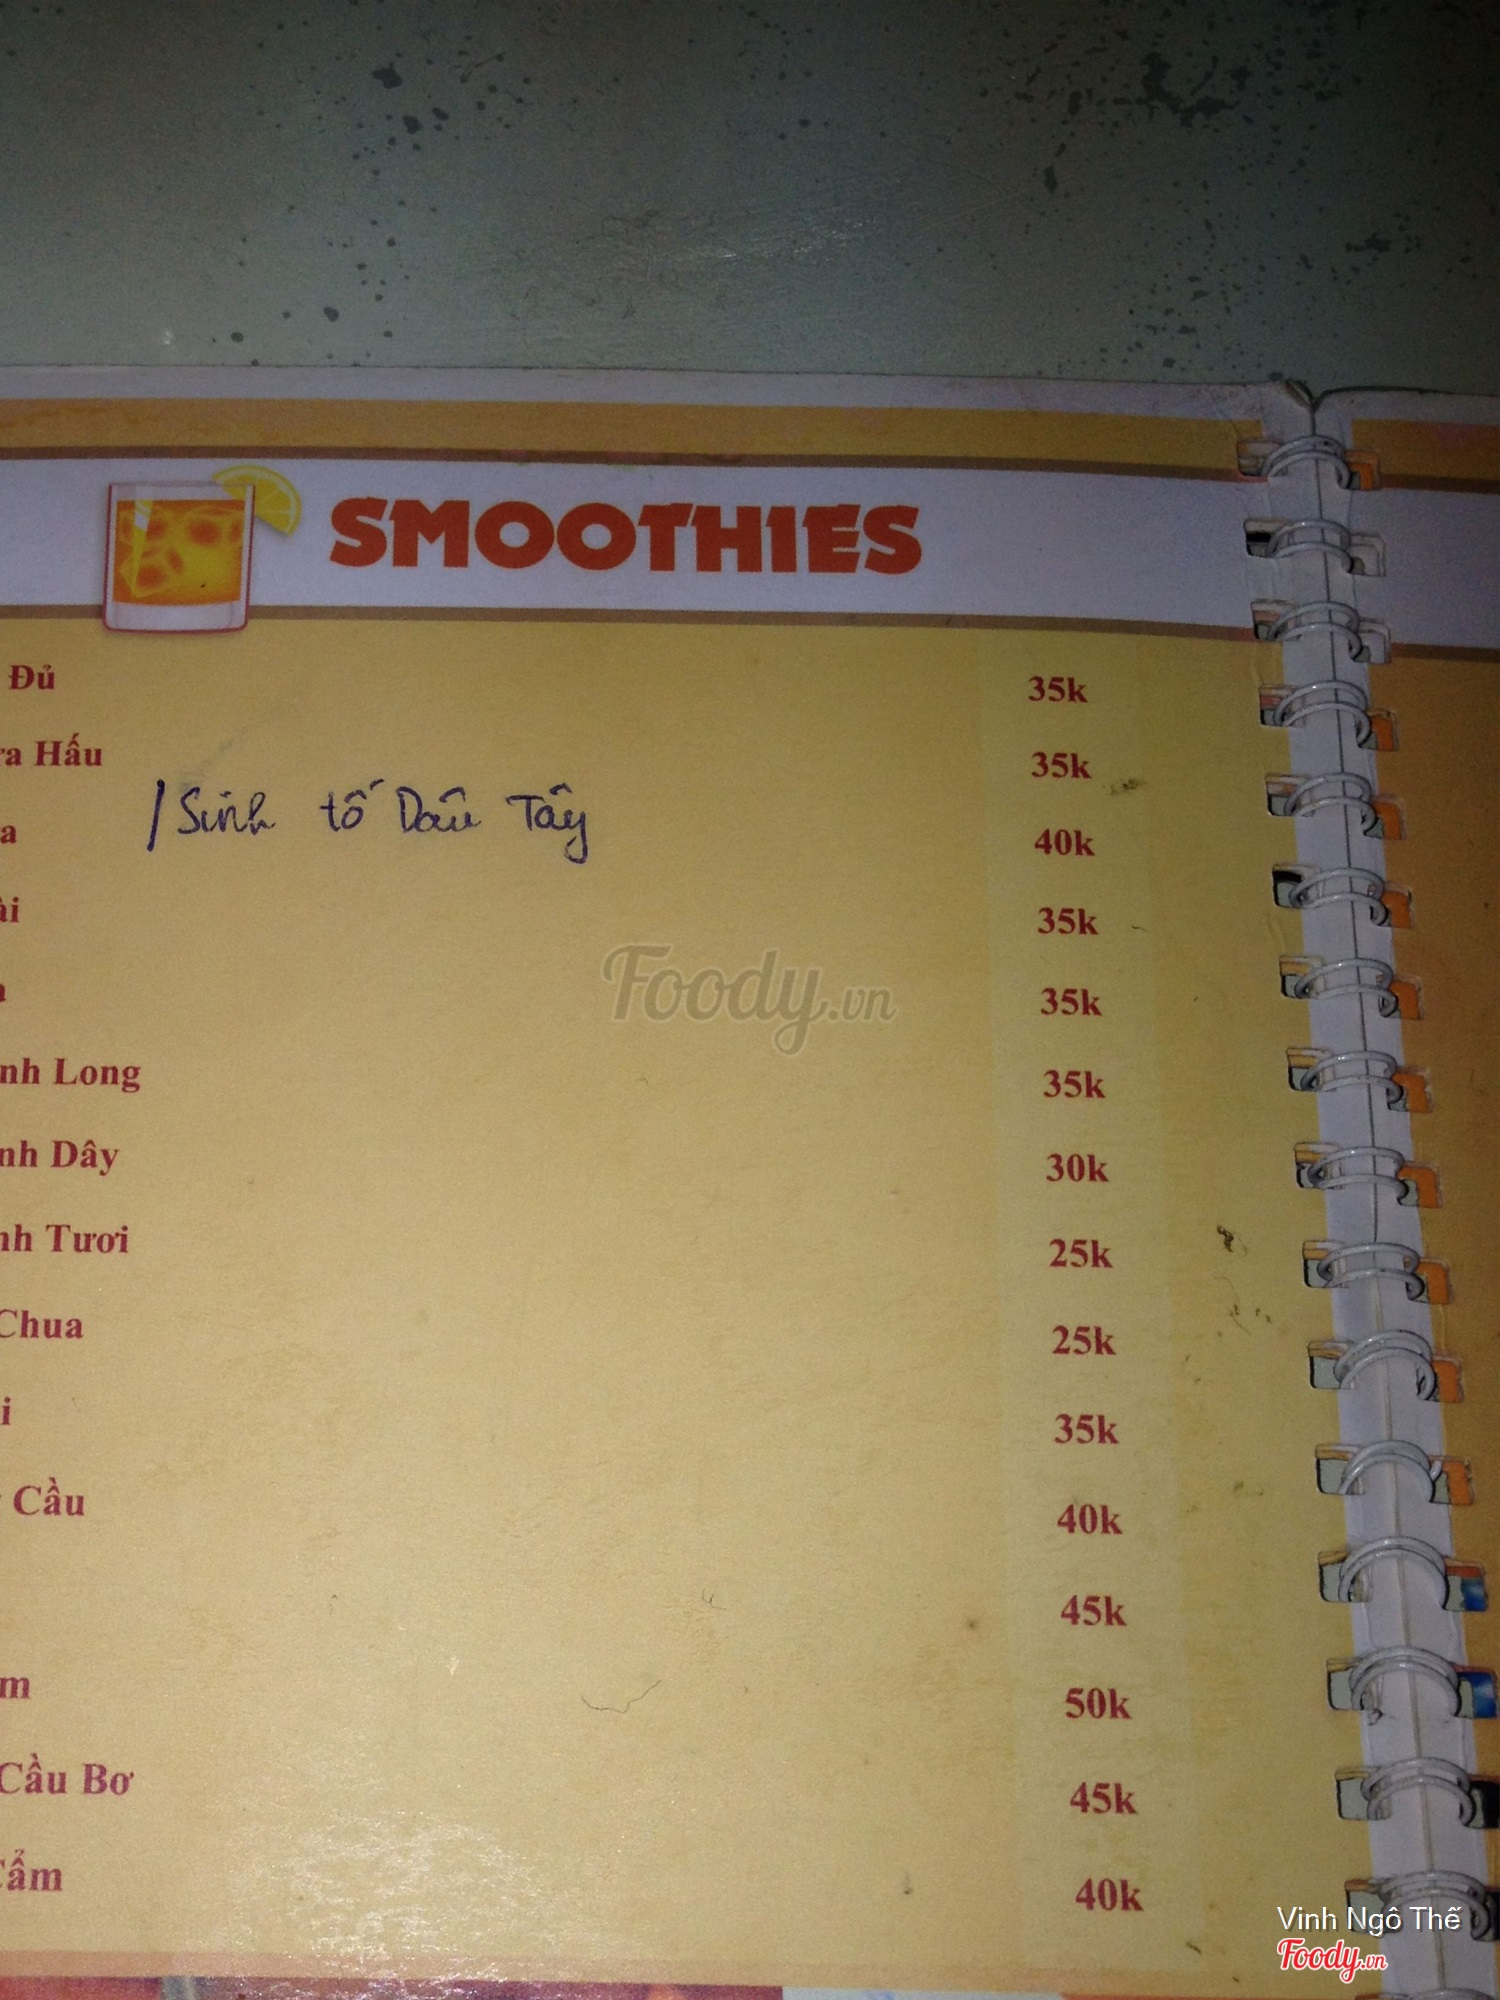 SMOOTHIES
Đủ 35k
ưa Hấu 35k
a / Sinh tố Dâu Tây 40k
ài 35k
a 35k
nh Long 35k
nh Dây 30k
nh Tươi 25k
Chua 25k
i 35k
Cầu 40k
45k
m 50k
Cầu Bơ 45k
Cẩm 40k
Foody.vn
Vinh Ngô Thế
Foody.vn